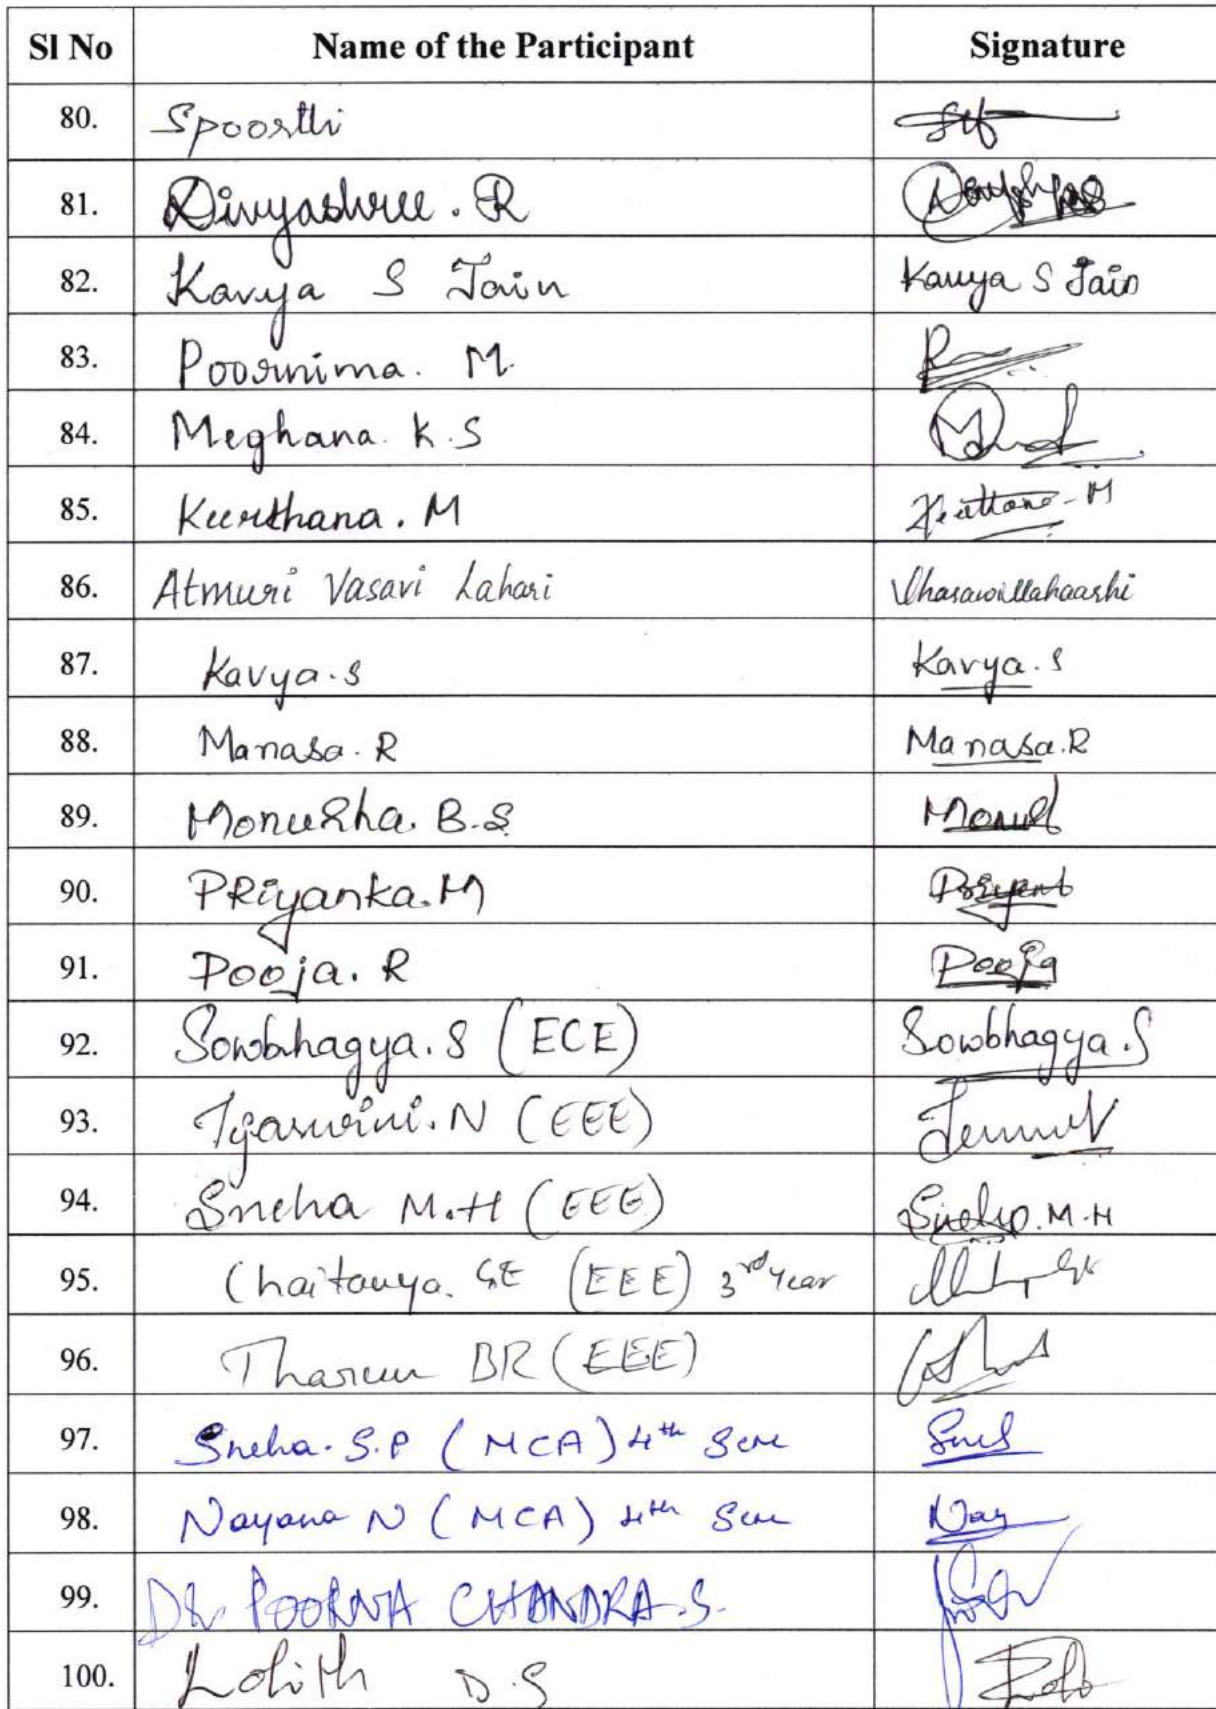 Sl No Name of the Participant Signature
80. Spoorthi
81. Divyashree. R
82. Kavya S Jain Kavya S Jain
83. Poornima. M.
84. Meghana. K.S
85. Keerthana. M Keerthana-M
86. Atmuri Vasavi Lahari
87. Kavya.S Kavya.S
88. Manasa.R Manasa.R
89. Monusha. B.S
90. PRiyanka.M
91. Pooja. R Pooja
92. Sowbhagya. S (ECE) Sowbhagya.S
93. Tejaswini. N (EEE)
94. Sneha M.H (EEE) Sneha.M.H
95. Chaitanya. (EEE) 3rd Year
96. Tharun BR (EEE)
97. Sneha. S.P (MCA) 4th Sem
98. Nayana N (MCA) 4th Sem Nay
99. Dr. POORNA CHANDRA.S.
100. Lohith D.S